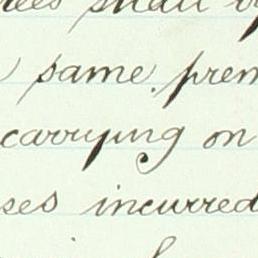 shall
same prem
carrying on
ses incurred